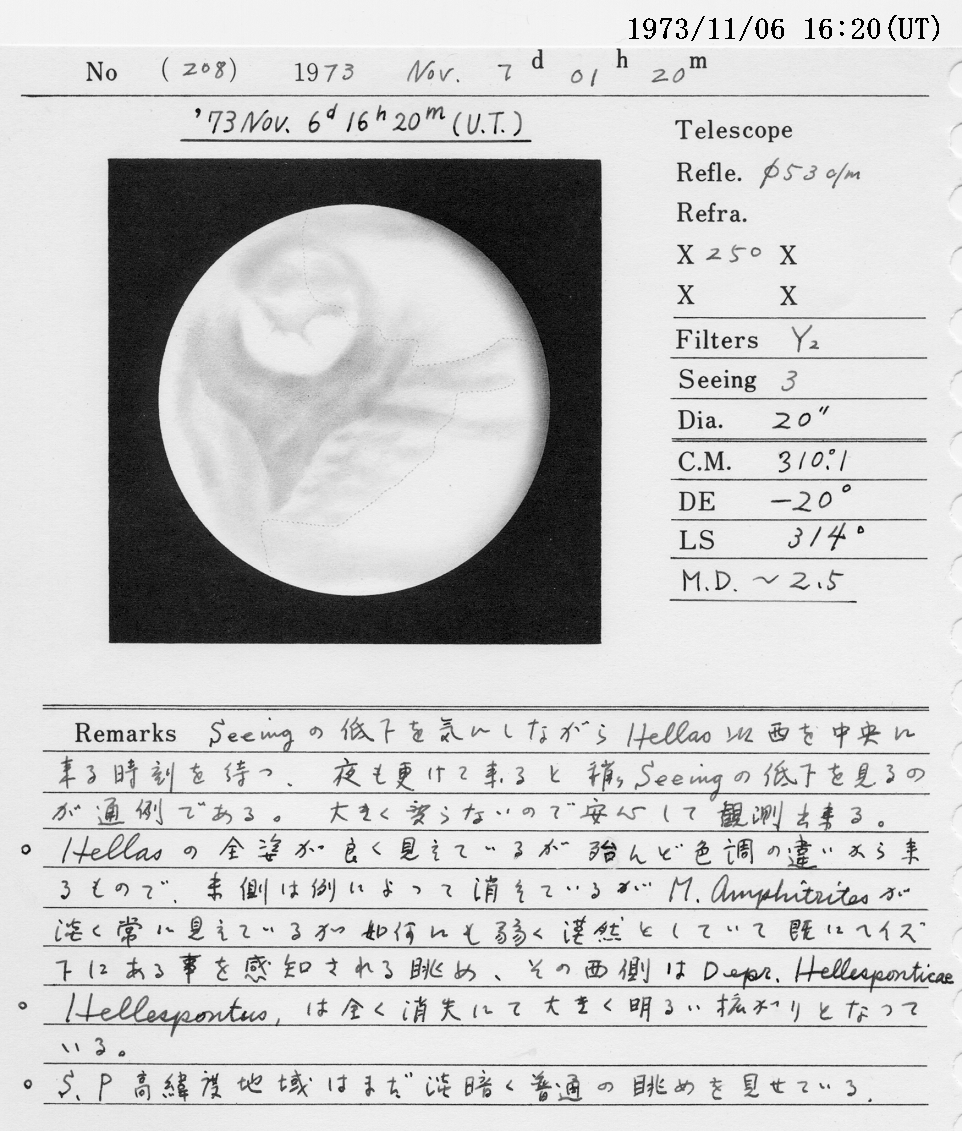 1973/11/06 16:20(UT)
No (208) 1973 Nov. 7 d 01 h 20 m
'73 Nov. 6d 16h 20m (U.T.)
Telescope
Refle. φ530/m
Refra.
X 250 X
X X
Filters Y2
Seeing 3
Dia. 20"
C.M. 310°.1
DE -20°
LS 314°
M.D. ~ 2.5
Remarks Seeingの低下を気にしながらHellas以西を中央に
来る時刻を待つ、夜も更けて来ると稍々Seeingの低下を見るの
が通例である。大きく変らないので安心して観測出来る。
○ Hellasの全姿が良く見えているが殆んど色調の違いから来
るもので、東側は例によって消えているがM. Amphitritesが
淡く常に見えているが如何にも弱く漠然としていて既にヘイズ
下にある事を感知される眺め、その西側はDepr. Hellesponticae
○ Hellespontus, は全く消失にて大きく明るい拡がりとなって
いる。
○ S.P高緯度地域はまだ淡暗く普通の眺めを見せている.